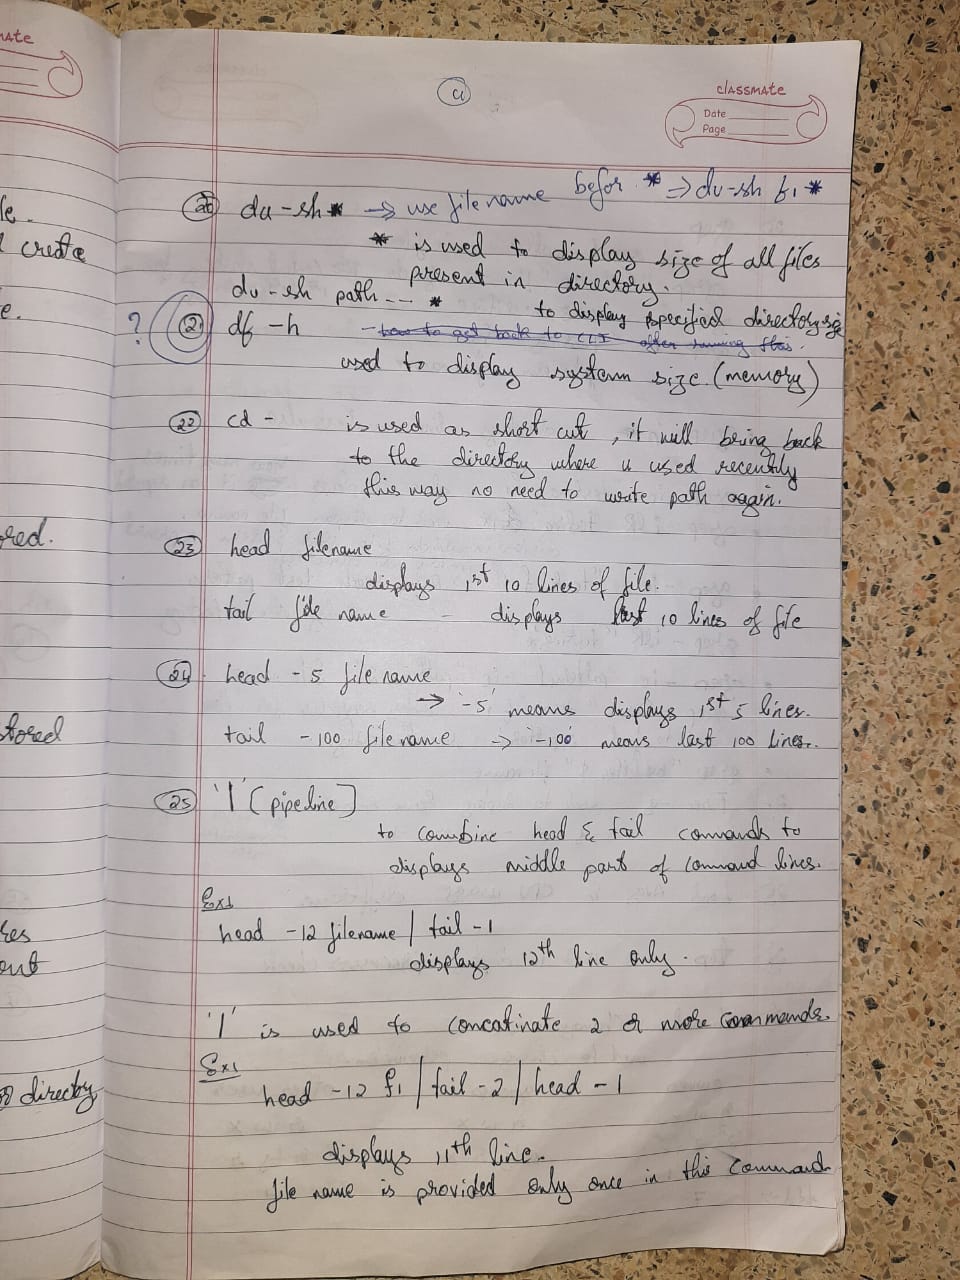 classmate
Date
Page
20 du -sh * → use file name befor * ⇒ du-sh f1 *
* is used to display size of all files
present in directory.
du -sh path -- * to display specified directory
? 21 df -h - how to get back to CLI after running this.
used to display system size. (memory)
22 cd - is used as short cut, it will being back
to the directory where u used recently
this way no need to write path again.
23 head filename
displays 1st 10 lines of file.
tail file name - displays last 10 lines of file
24 head -5 file name
→ '-5' means displays 1st 5 lines.
tail -100 file name → '-100' means last 100 lines.
25 '|' [pipeline]
to combine head & tail commands to
displays middle part of command lines.
Ex1
head -12 filename | tail -1
displays 12th line only.
'|' is used to concatinate 2 or more commands.
Ex1
head -12 f1 | tail -2 | head -1
displays 11th line.
file name is provided only once in this command
mate
create
e.
ored.
stored
out
directory